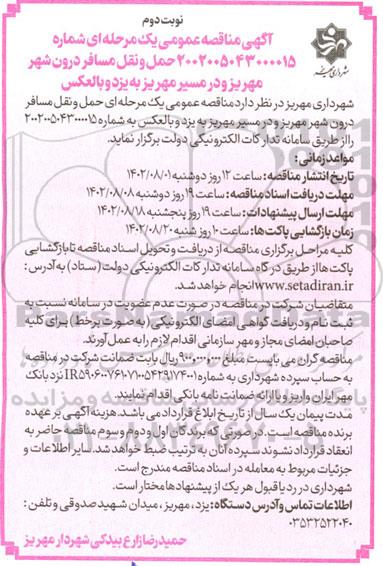 نوبت دوم
آگهی مناقصه عمومی یک مرحله ای شماره
۲۰۰۲۰۰۵۰۴۳۰۰۰۰۱۵ حمل و نقل مسافر درون شهر
مهریز و در مسیر مهریز به یزد و بالعکس
شهرداری مهریز
شهرداری مهریز در نظر دارد مناقصه عمومی یک مرحله ای حمل و نقل مسافر
درون شهر مهریز و در مسیر مهریز به یزد و بالعکس به شماره ۲۰۰۲۰۰۵۰۴۳۰۰۰۰۱۵
را از طریق سامانه تدارکات الکترونیکی دولت برگزار نماید.
مواعد زمانی:
تاریخ انتشار مناقصه: ساعت ۱۲ روز دوشنبه ۱۴۰۲/۰۸/۰۱
مهلت دریافت اسناد مناقصه: ساعت ۱۹ روز دوشنبه ۱۴۰۲/۰۸/۰۸
مهلت ارسال پیشنهادات: ساعت ۱۹ روز پنجشنبه ۱۴۰۲/۰۸/۱۸
زمان بازگشایی پاکت ها: ساعت ۱۰ روز شنبه ۱۴۰۲/۰۸/۲۰
کلیه مراحل برگزاری مناقصه از دریافت و تحویل اسناد مناقصه تا بازگشایی
پاکت ها از طریق درگاه سامانه تدارکات الکترونیکی دولت (ستاد) به آدرس:
www.setadiran.ir انجام خواهد شد.
متقاضیان شرکت در مناقصه در صورت عدم عضویت در سامانه نسبت به
ثبت نام و دریافت گواهی امضای الکترونیکی (به صورت برخط) برای کلیه
صاحبان امضای مجاز و مهر سازمانی اقدام لازم را به عمل آورند.
مناقصه گران می بایست مبلغ ۹۰۰,۰۰۰,۰۰۰ ریال بابت ضمانت شرکت در مناقصه
به حساب سپرده شهرداری به شماره نزد بانک
مهر ایران واریز و یا ارائه ضمانت نامه بانکی اقدام نمایند.
مدت پیمان یک سال از تاریخ ابلاغ قرارداد می باشد. هزینه آگهی بر عهده
برنده مناقصه است. در صورتی که برندگان اول و دوم و سوم مناقصه حاضر به
انعقاد قرارداد نشوند سپرده آنان به ترتیب ضبط خواهد شد. سایر اطلاعات و
جزئیات مربوط به معامله در اسناد مناقصه مندرج است.
شهرداری در رد یا قبول هر یک از پیشنهادها مختار است.
اطلاعات تماس و آدرس دستگاه: یزد، مهریز، میدان شهید صدوقی و تلفن:
۰۳۵۳۲۵۲۲۰۴۰
حمیدرضا زارع بیدکی شهردار مهریز